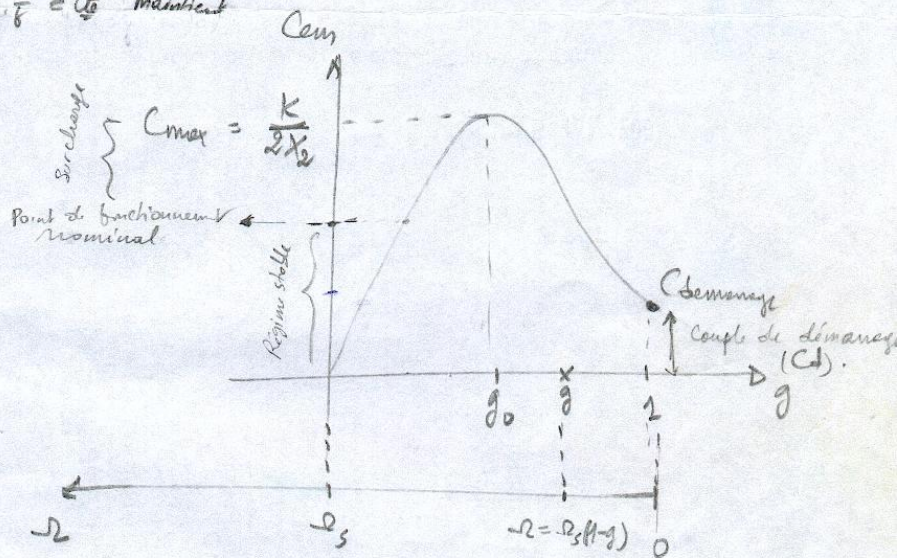 maintient
Cem
Surcharge
Cmax = K / 2X₂
Point de fonctionnement
nominal
Régime stable
Cdemarrage
Couple de démarrage
(Cd).
g₀ g 1 g
Ω Ωs Ω = Ωs(1-g) 0